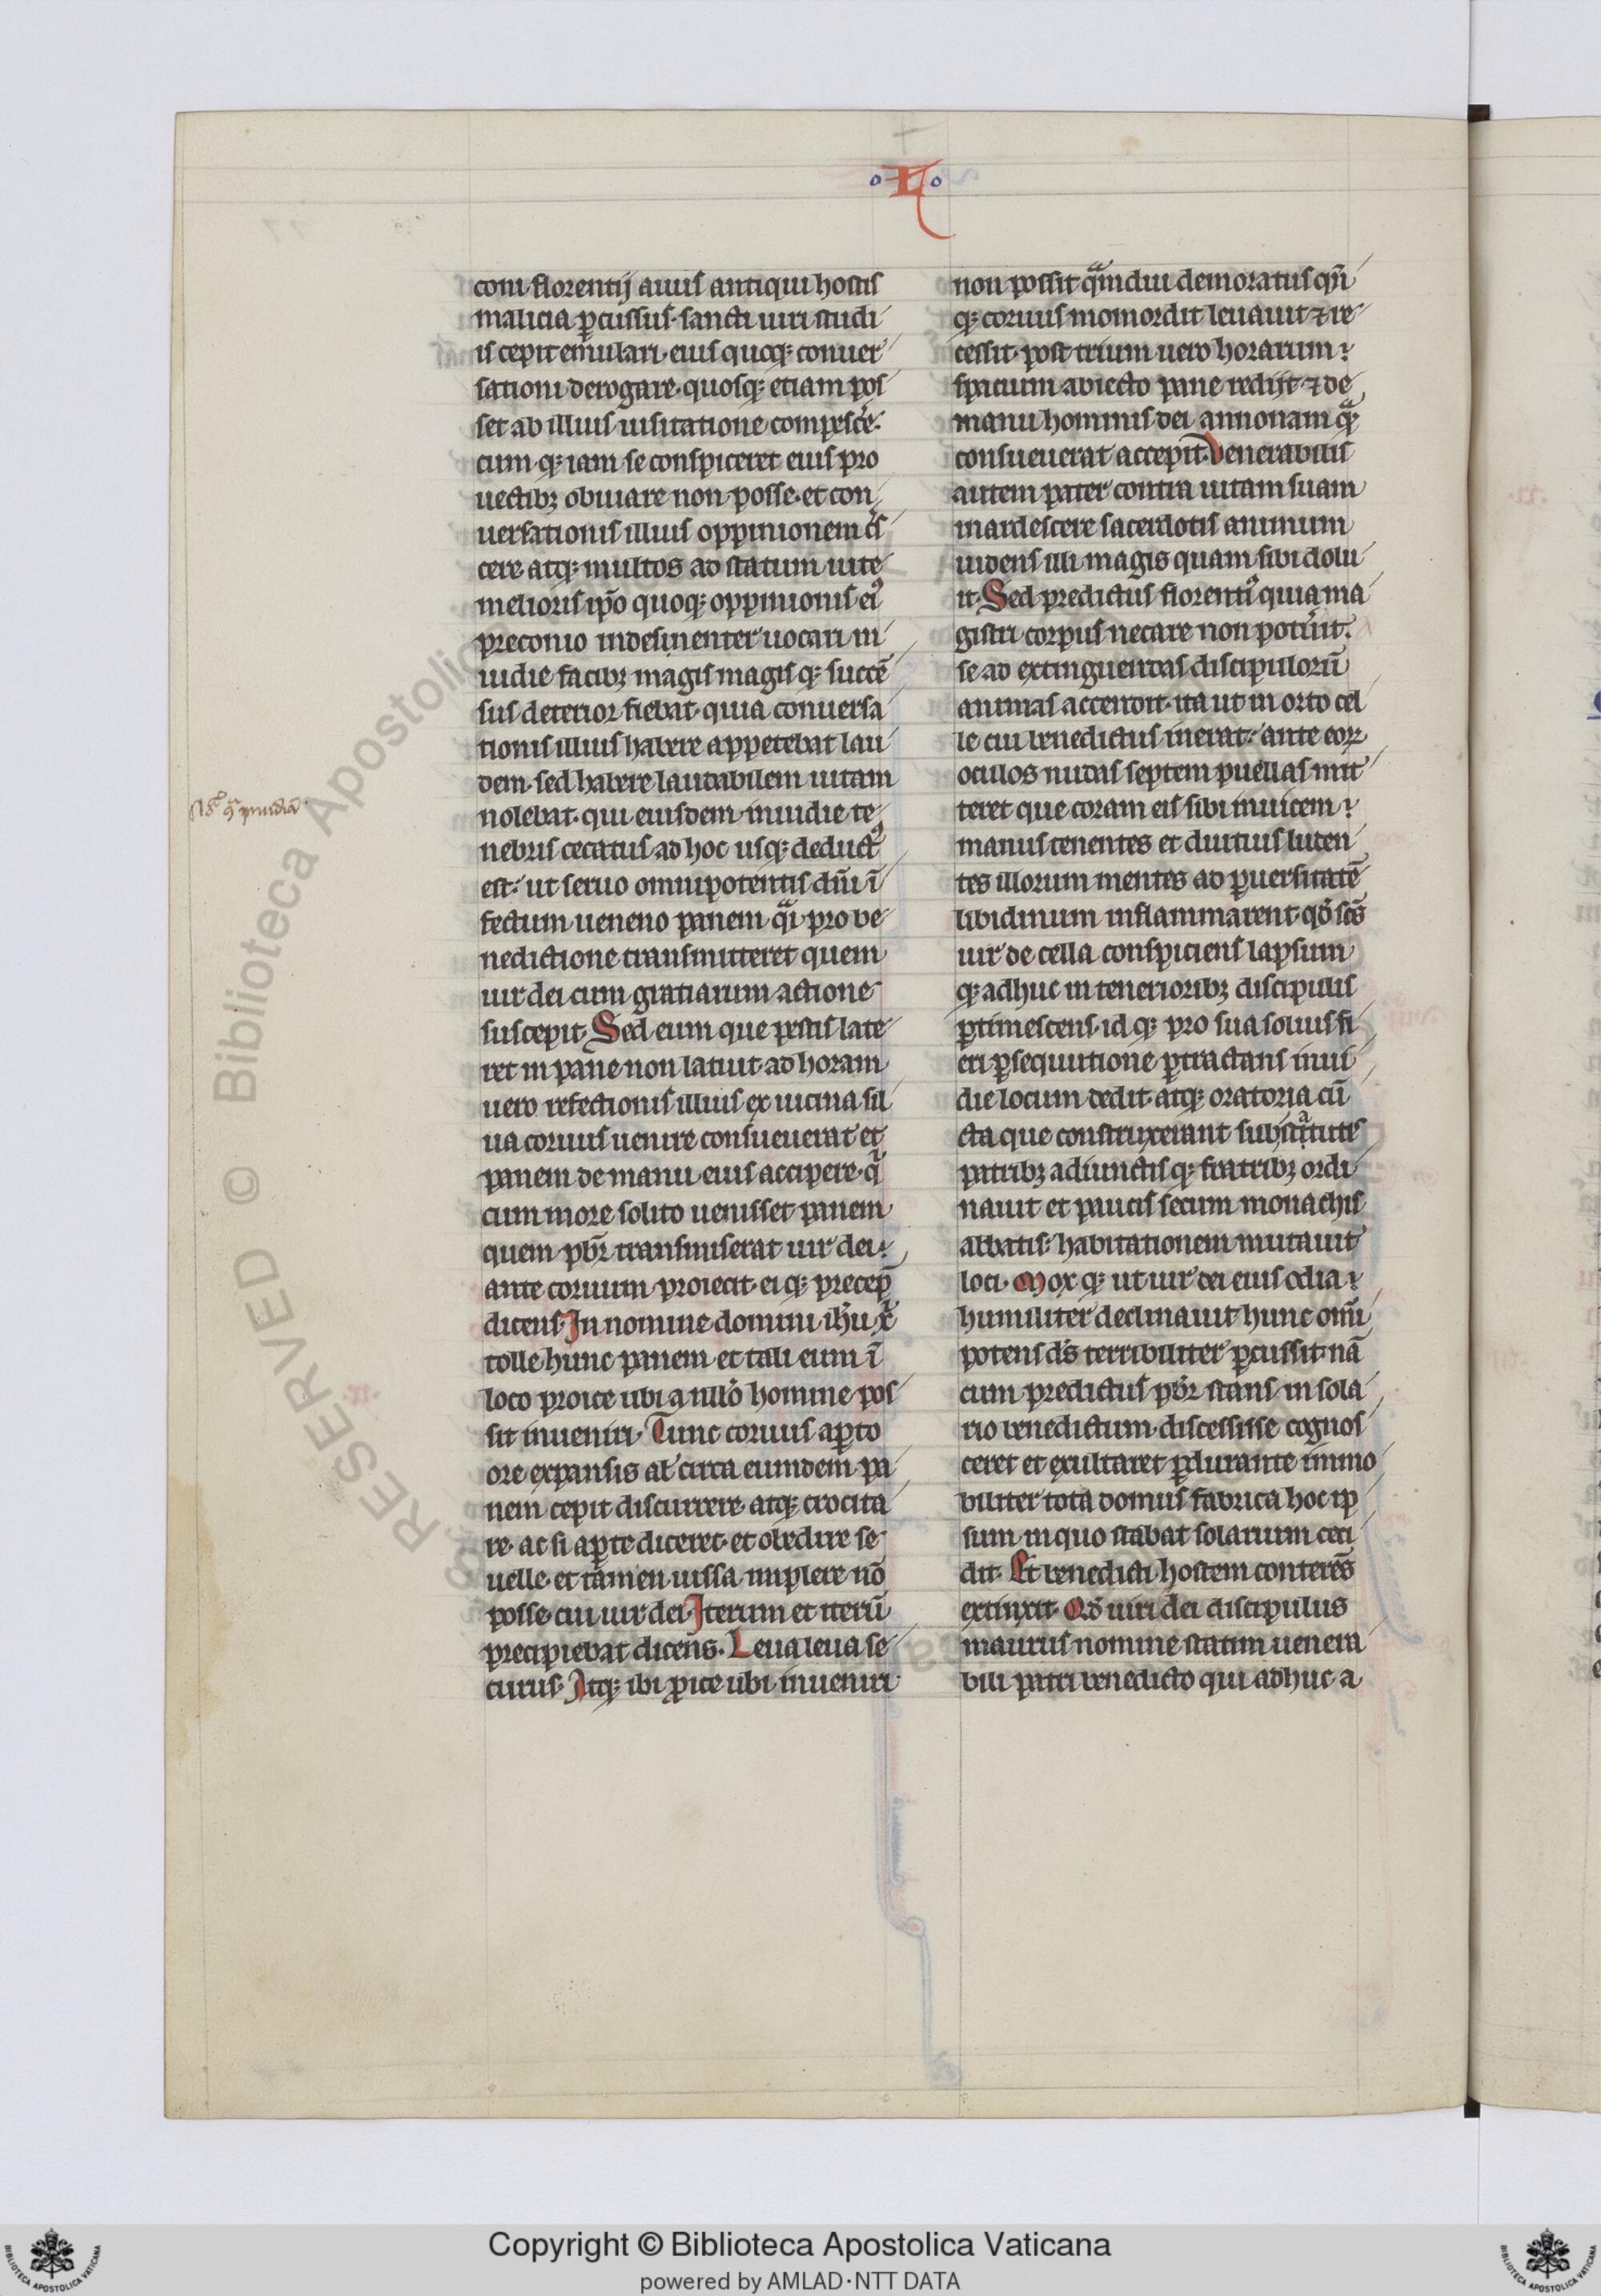 ·L·
coni florentij auus antiqui hostis
malicia p̱cussus· sancti uiri studi
is cepit emulari· eius quoq; conuer
sationi derogare· quosq; etiam pos
set ab illius uisitatione compescẽ·
cum q; iam se conspiceret eius pro
uectib; obuiare non posse· et con
uersationis illius oppinionem cͥs
cere atq; multos ad statum uite
melioris ip̃o quoq; oppinionis eiꝰ
preconio indesinenter uocari in
uidie facib; magis magis q; succẽ
sus deterior fiebat· quia conuersa
tionis illius habere appetebat lau
dem· sed habere laudabilem uitam
nolebat· qui eiusdem inuidie te
nebris cecatus ad hoc usq; deductꝰ
est· ut seruo omnipotentis dñi ĩ
fectum ueneno panem qͣi pro be
nedictione transmitteret quem
uir dei cum gratiarum actione
suscepit· Sed eum que pestis late
ret in pane non latuit· ad horam
uero refectionis illius ex uicina sil
ua coruus uenire consueuerat et
panem de manu eius accipere· qͥ
cum more solito uenisset panem
quem pb̃r transmiserat uir dei
ante coruum proiecit· ei q; precep̃
dicens· In nomine domini ih̃u xͥ
tolle hunc panem et tali eum ĩ
loco proice ubi a nullo homine pos
sit inueniri· Tunc coruus aꝑto
ore expansis al' circa eumdem pa
nem cepit discurrere atq; crocita
re· ac si aꝑte diceret· et obedire se
uelle· et tamen iussa implere nõ
posse· cui uir dei· Iterum et iterũ
precipiebat dicens· Leua leua se
curus· Atq; ibi ꝓice ubi inueniri
non possit qͣmdiu demoratus qñ
q; coruus momordit leuauit ⁊ re
cessit· post trium uero horarum
spacium abiecto pane redijt ⁊ de
manu hominis dei annonam qͣ;
consueuerat accepit· Venerabilis
autem pater contra uitam suam
inardescere sacerdotis animum
uidens illi magis quam sibi dolu
it· Sed predictus florentiꝰ quia ma
gistri corpus necare non potuit·
se ad extinguendas discipulorũ
animas accendit· ita ut in orto cel
le cui benedictus inerat· ante eoꝝ
oculos nudas septem puellas mit
teret que coram eis sibi inuicem
manus tenentes et diutius luden
tes illorum mentes ad ꝑuersitatẽ
libidinum inflammarent· qđ sc̃s
uir de cella conspiciens lapsum
q; adhuc in tenerioribꝫ discipulis
ꝑtimescens· id q; pro sua solius fi
eri ꝑsequutione ꝑtractans inui
die locum dedit· atq; oratoria cũ
cta que construxerant substͣtutis
patribꝫ adiunctis q; fratribꝫ ordi
nauit et paucis secum monachis
ablatis· habitationem mutauit
loci· Mox q; ut uir dei eius odia
humiliter declinauit hunc om̃i
potens d̃s terribiliter ꝑcussit· nã
cum predictus pb̃r stans in sola
rio benedictum discessisse cognos
ceret et exultaret ꝑdurante immo
biliter tota domus fabrica hoc ip
sum in quo stabat solarium ceci
dit· Et benedicti hostem conterẽs
extinxit· Qđ uiri dei discipulus
maurus nomine statim uenera
bili patri benedicto qui adhuc a
RESERVED © Biblioteca Apostolica
Copyright © Biblioteca Apostolica Vaticana
powered by AMLAD·NTT DATA